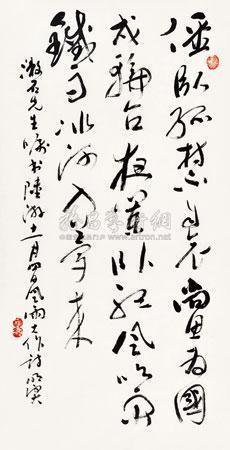 僵臥孤村不自哀尚思為國
戍輪台夜闌臥聽風吹雨
鐵馬冰河入夢來
先生囑書陸游十一月四日風雨大作詩
www.artron.net